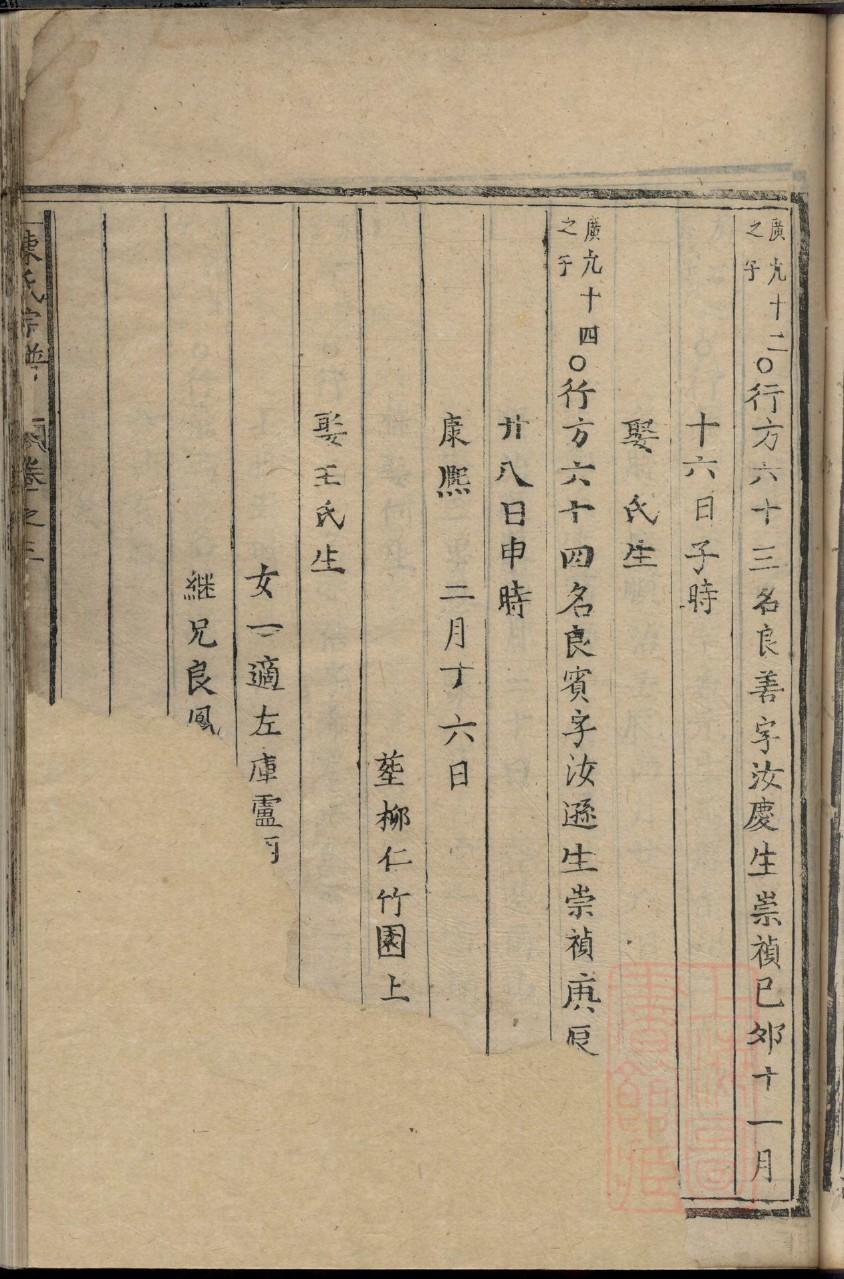 廣九十二之子〇行方六十三名良善字汝慶生崇禎己卯十一月
十六日子時
娶 氏生
廣九十四之子〇行方六十四名良賓字汝遜生崇禎庚辰
廿八日申時
康熙 二月十六日
塟柳仁竹園上
娶王氏生
女一適左庫盧
継兄良鳳
陳氏宗譜 卷之三